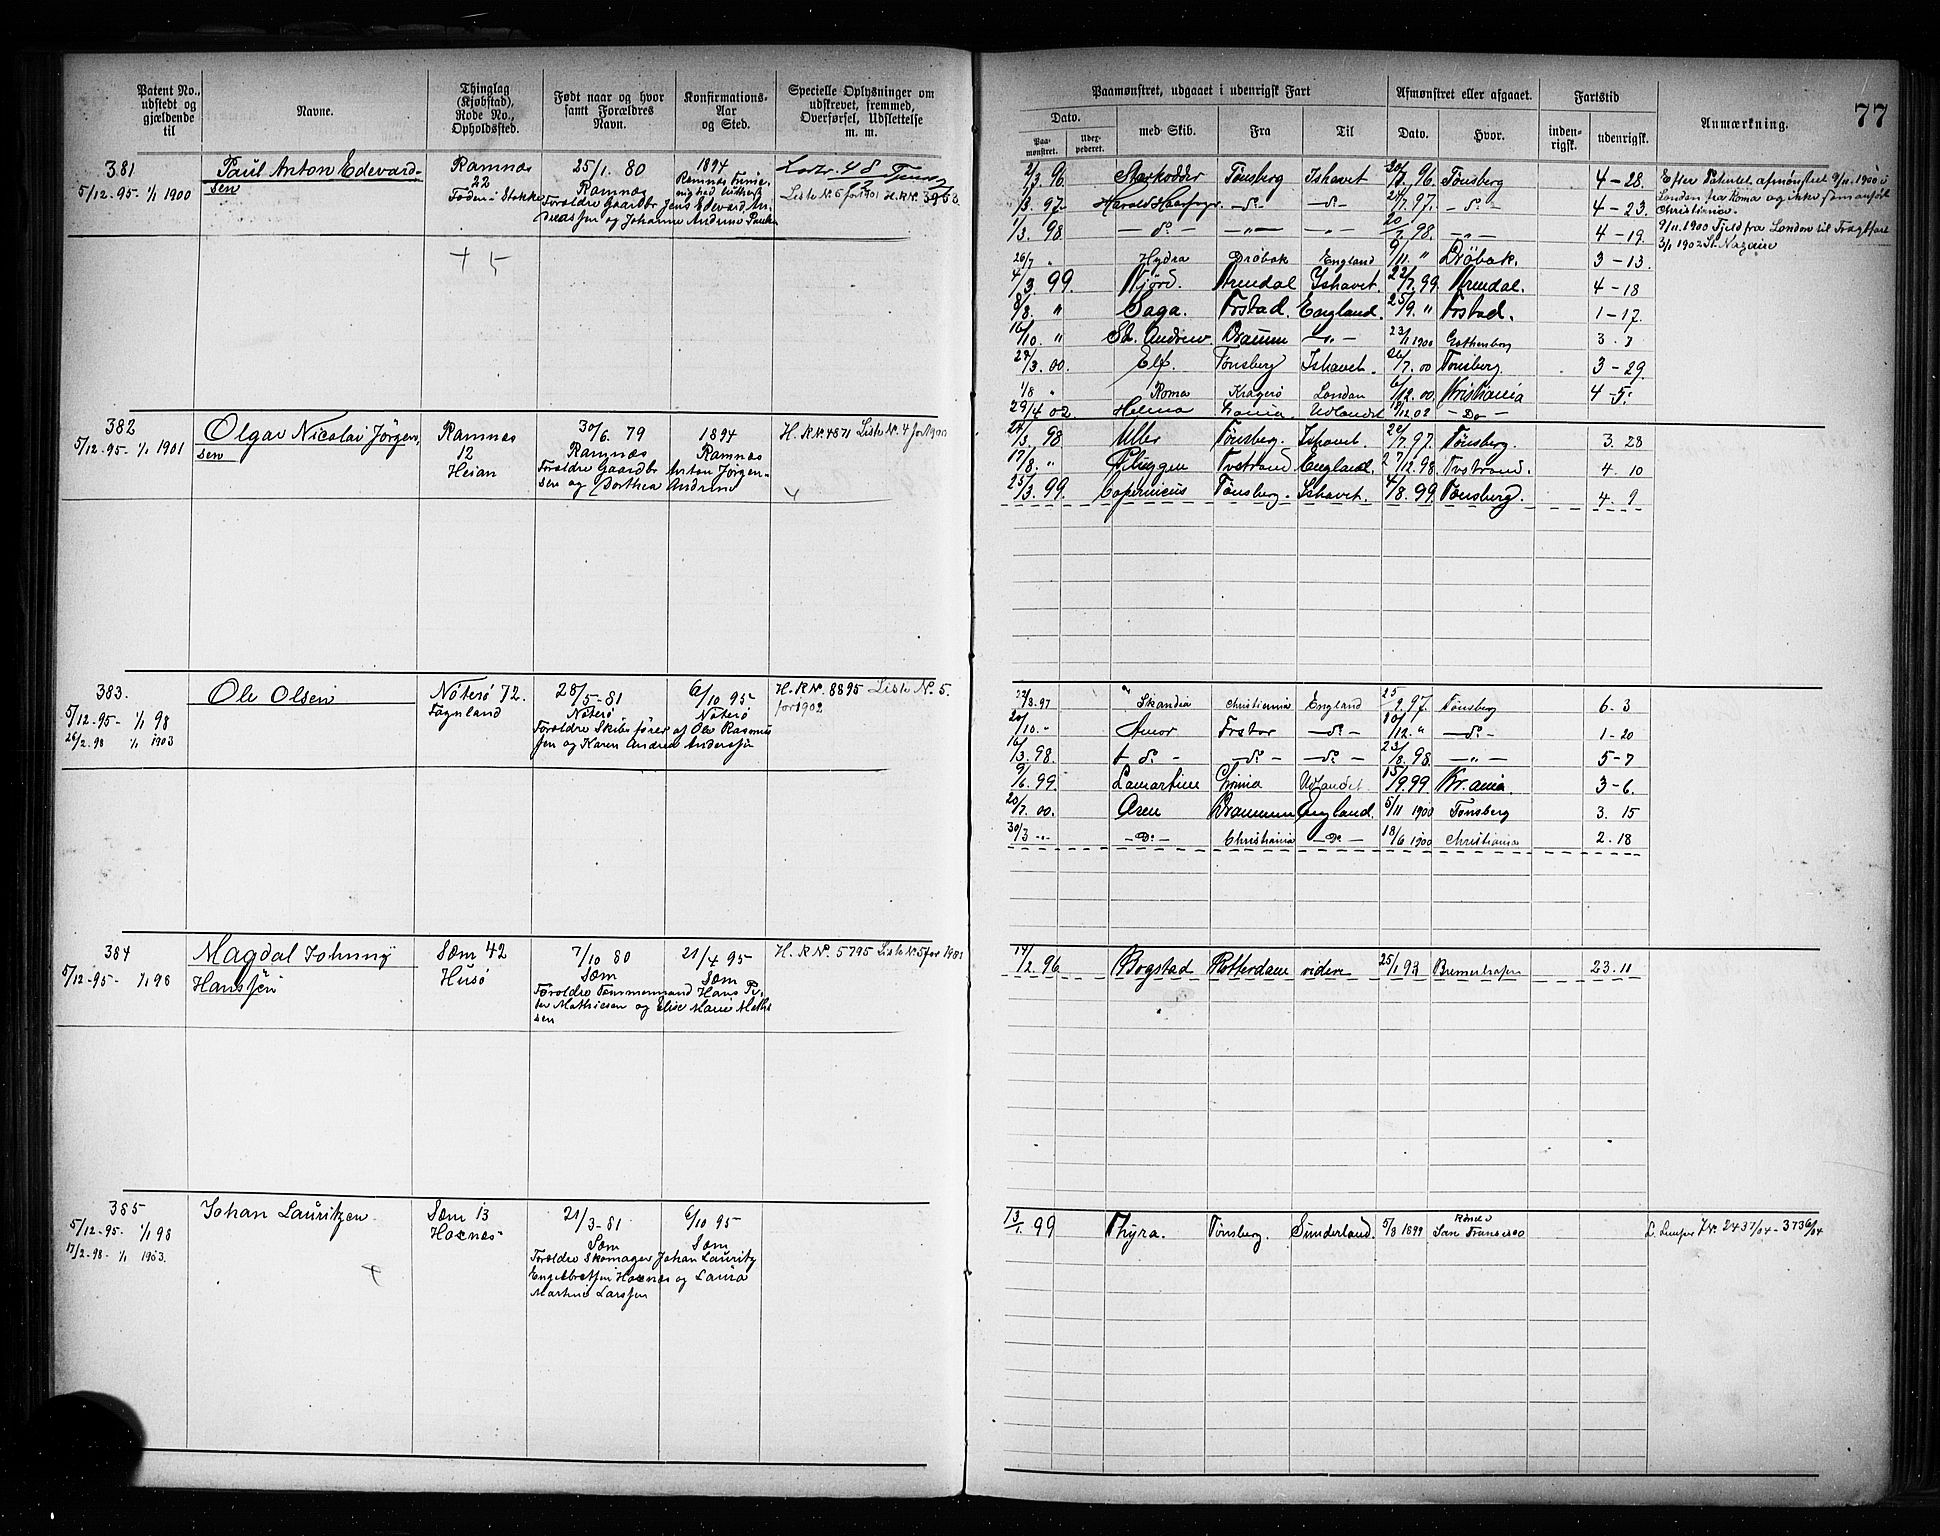 77
Patent No., udstedt og gjældende til
Navne.
Thinglag (Kjøbstad), Rode No., Opholdssted.
Født naar og hvor samt Forældres Navn.
Konfirmations-Aar og Sted.
Specielle Oplysninger om udskrevet, fremmed, Overførsel, Udslettelse m. m.
Paamønstret, udgaaet i udenrigsk Fart
Dato.
Paamønstret.
Udexpederet.
med Skib.
Fra
Til
Afmønstret eller afgaaet.
Dato.
Hvor.
Fartstid
indenrigsk.
udenrigsk.
Anmærkning.
381
5/12. 95. 1/1 1900
Paul Anton Edevard-
sen
Ramnæs
22
Foden i Stokke
25/1. 80
Ramnæs
Forældre Gaardbr Jens Edevard An-
dreassen og Johanne Andrine
1894
Liste N. 5 for 1901 H.R.N. 3953.
2/3. 96. Starkodder Tönsberg Ishavet 20/7. 96. Tönsberg 4-28.
1/3. 97. Harald Haarfagr. -d.- -d.- 97. -d.- 4-23.
1/3. 98. -d.- -„- -„- 20/7. 98. -„- 4-19.
26/7 „ Hydra Dröbak England 9/11. „ Dröbak. 3-13.
4/3. 99. Njörd. Arendal Ishavet. 22/7. 99. Arendal. 4-18
8/8. „ Saga. Frstad. England. 25/9. „ Frstad. 1-17.
16/10. „ St. Andrew. Dramm -„- 23/1 1900 Gothenborg 3. 7
27/3. 00. Elf. Tönsberg Ishavet. 26/7. 00 Tönsberg. 3-29.
1/8 „ Roma Kragerö London 6/12. 00. Kristiania 4-5.
29/4 02. Helma Udlandet 9/12 02 -Do-
Efter Patentet afmönstret 9/11. 1900 i
London fra Roma og ikke som anfört
Christiania.
9/11. 1900 Fjeld fra London til Fragtfart
3/1 1902 St. Nazaire
+ 5
382
5/12. 95. 1/1 1901
Olgar Nicolai Jörgen-
sen
Ramnæs
12
Heian
30/6. 79
Ramnæs
Forældre Gaardbr Anton Jörgen-
sen og Dorthea Andrine
1894
Ramnæs
H.R.N. 4871 Liste N. 4 for 1901
98 Uller Tönsberg. Ishavet. 22/7. 97. Tönsberg. 3. 28
17/8. „ Tvstrand England. 27/12. 98. Tvstrand. 4. 10
25/3. 99. Copernicus Tönsberg. Ishavet. 4/8. 99. Tönsberg. 4. 9
383.
5/12-95- 1/1 98
26/2. 98 1/1 1903
Ole Olsen
Nöterö 72.
Fagnland
28/5-81
Nöterö
Forældre Skibsförer af Ole Rasmus
sen og Karen Andrea Anderssen
6/10 95
Nöterö
H.R.N. 8895 Liste N. 5.
for 1902
27/3. 97 Skandia Christiania England 25/9. 97. Tönsberg 6. 3
20/10. „ Amor Frstad -d.- 10/12. „ -d.- 1-20
16/3. 98. -d.- -d.- -d.- 23/8. 98. -„- 5-7
9/6. 99. Lamartine Udlandet 15/9. 99 Kr.ania. 3-6.
20/7. 00. Oren Drammen England. 5/11 1900 Tönsberg 3. 15
30/3 -„- -D.- Christiania -D.- 18/6 1900 Christiania 2. 18
384
5/12-95- 1/1 98
Magdal Johnny
Hanssen
Sæm 42
Husö
7/10 80
Sæm
Forældre Tömmermand Hans Pe-
ter Mathiesen og Elise Marie Mathi
sen
21/4 95
Sæm
H.R.N. 5795 Liste N. 5 for 1901
14/2. 96 Bogstad Rotterdam videre 25/1 98 Bremerhafen 23. 11
385
5/12-95. 1/1 98
17/2-98- 1/1 1903.
Johan Lauritzen
Sæm 13
Hoenæs
21/3-81
Sæm
Forældre Skomager Johan Lauritz
Engelbretsen Hoenæs og Laura
Martine Larssen
6/10 95
Sæm
13/1. 99 Thyra. Tönsberg. Sunderland. 5/8 1899 Römt i San Francisco
J.N. 2437/04-3736/04